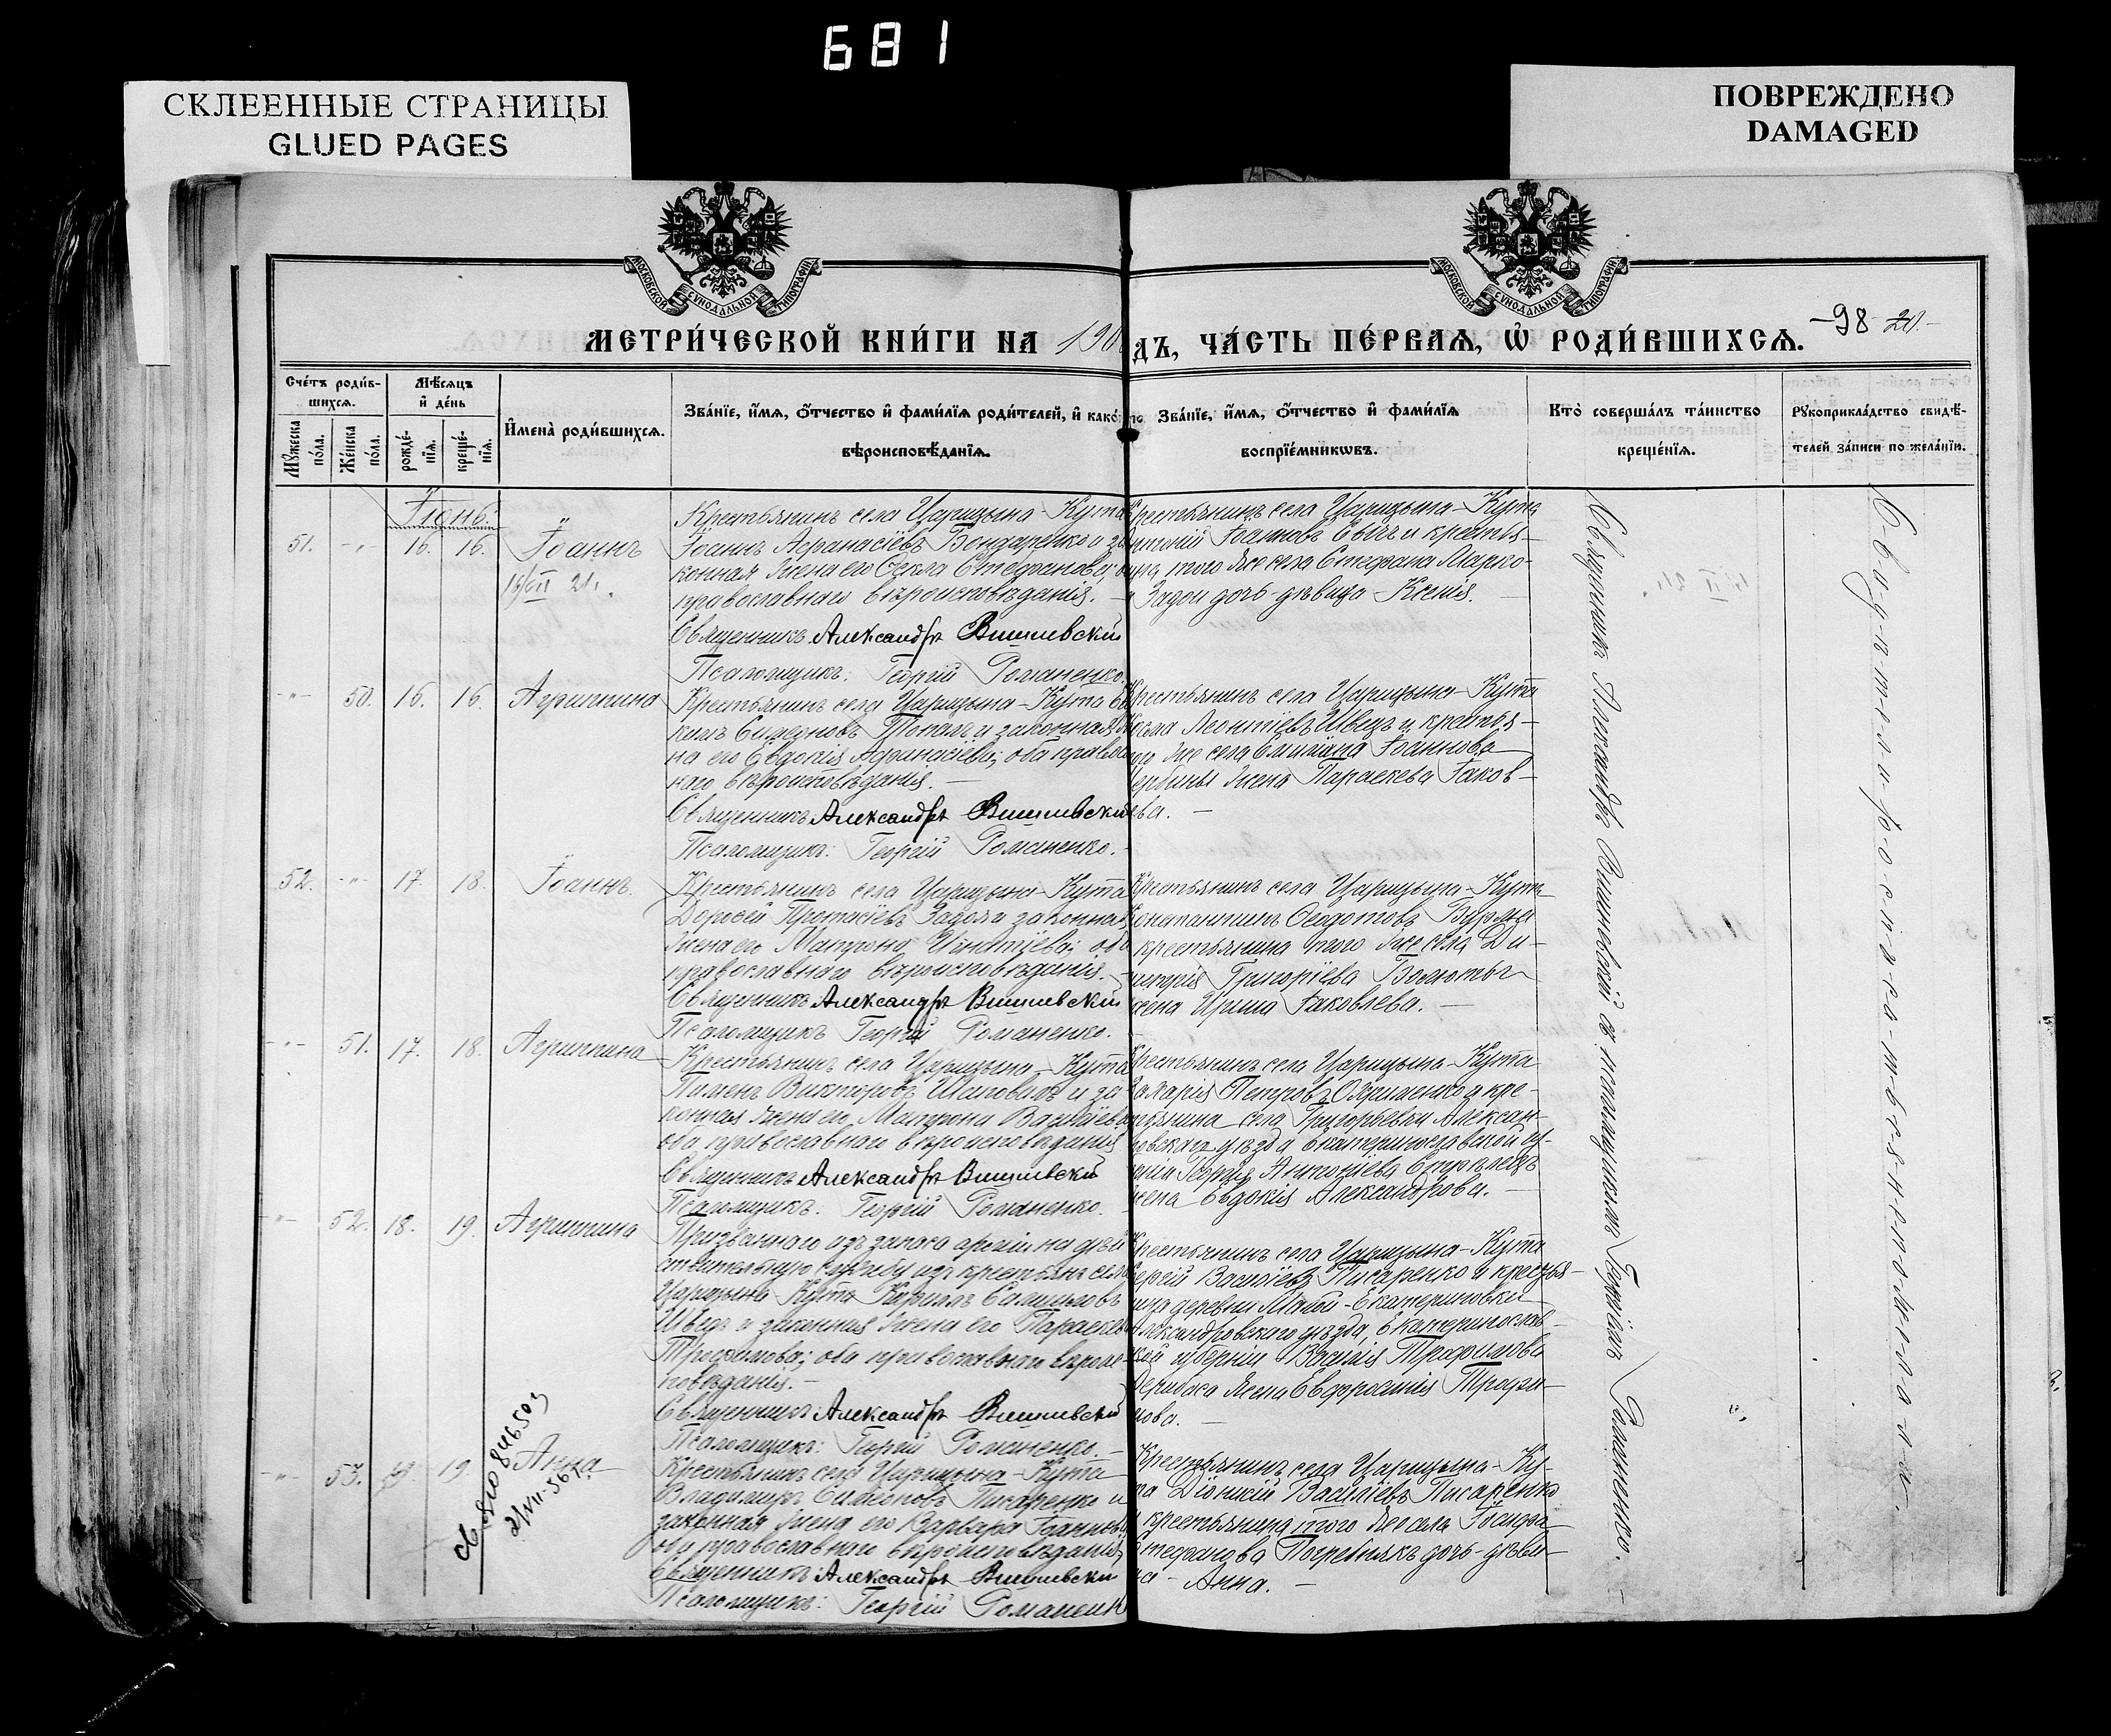 681
СКЛЕЕННЫЕ СТРАНИЦЫ
GLUED PAGES
ПОВРЕЖДЕНО
DAMAGED
МОСКОВСКОЙ СУНОДАЛЬНОЙ ТИПОГРАФІИ
МОСКОВСКОЙ СУНОДАЛЬНОЙ ТИПОГРАФІИ
МЕТРИ́ЧЕСКОЙ КНИ́ГИ НА 190
дъ, ЧА́СТЬ ПЕ́РВАЯ, Ѽ РОДИ́ВШИХСЯ.
-98 20.-
Сче́тъ роди́в-
шихся.
Мѣ́сяцъ
и҆ де́нь
Мꙋ́жеска
по́ла.
Же́нска
по́ла.
рожде́-
нїя.
креще́-
нїя.
И҆мена̀ роди́вшихся.
Зва́нїе, и҆́мя, ѻ҆́тчество и҆ фами́лїя роди́телей, и҆ како́
вѣроисповѣ́данїя.
Зва́нїе, и҆́мя, ѻ҆́тчество и҆ фами́лїя
воспрїе́мникѡвъ.
Кто̀ соверша́лъ та́инство
креще́нїя.
Рꙋкоприкла́дство свидѣ́-
телей за́писи по жела́нїю.
Іюнь.
51. -"- 16. 16. Іоаннъ
16/VII 21.
Крестьянинъ села Царицына-Кута
Іоаннъ Аѳанасіевъ Бондаренко и за
конная жена его Ѳекла Стефанова; о
православнаго вѣроисповѣданія. -
Священникъ Александръ Вишневскій
Псаломщикъ: Георгій Романенко.
Крестьянинъ села Царицына-Кута
Іоанновъ и крестья-
того же села Стефана Марко-
Задои дочь-дѣвица Ксенія. -
-"- 50. 16. 16. Агриппина
Крестьянинъ села Царицына-Кута
кимъ Симеоновъ и законная
на его Евдокія Аѳанасіева; оба правос
наго вѣроисповѣданія. -
Священникъ Александръ Вишневскій
Псаломщикъ: Георгій Романенко.
Крестьянинъ села Царицына-Кута
Леонтіевъ Швецъ и крестья-
го же села Іоаннова
жена Параскева Іаков-
ева. -
52. -"- 17. 18. Іоаннъ.
Крестьянинъ села Царицына-Кута
Дороѳей Протасіевъ Задоя и законная
жена его Матрона Игнатіева; оба
православнаго вѣроисповѣданія. -
Священникъ Александръ Вишневскій
Псаломщикъ Георгій Романенко.
Крестьянинъ села Царицына-Кута
Ѳеодотовъ Бурма
крестьянина того же села Ди-
митрія Григоріева Болоты
жена Ирина Іаковлева. -
-"- 51. 17. 18. Агриппина
Крестьянинъ села Царицына-Кута
Пименъ Викторовъ Шаповалъ и за
конная жена его Матрона Василіева
оба православнаго вѣроисповѣданія
Священникъ Александръ Вишневскій
Псаломщикъ. Георгій Романенко.
Крестьянинъ села Царицына-Кута
Захарія Петровъ и кре-
стьянина села Григорьевки Алексан-
дровскаго уѣзда Екатеринославской гу-
берніи Георгія Антоніева
жена Евдокія Александрова. -
-"- 52. 18. 19. Агриппина
Призваннаго изъ запаса арміи на дѣй
ствительную службу изъ крестьянъ села
Царицына-Кута Кириллъ Самуиловъ
Швецъ и законная жена его Параскева
Трофимова; оба православнаго вѣроис-
повѣданія. -
Священникъ Александръ Вишневскій
Псаломщикъ: Георгій Романенко. -
Крестьянинъ села Царицына-Кута
Сергій Василіевъ Писаренко и крестья-
ница деревни Малой-Екатериновки
Александровскаго уѣзда, Екатеринослав-
ской губерніи Василія Трофимова
Дерибаса жена Евфросинія Трофи-
мова. -
-"- 53. 19. Анна
21/VII-56 г.
Крестьянинъ села Царицына-Кута
Владимиръ Симеоновъ Писаренко и
законная жена его Варвара Іоаннова
оба православнаго вѣроисповѣданія,
Священникъ Александръ Вишневскій
Псаломщикъ: Георгій Романенк
Крестьянинъ села Царицына-Ку-
та Діонисій Василіевъ Писаренко
и крестьянина того же села Іосифа
Стефанова Погребнякъ дочь-дѣви-
ца - Анна. -
Священникъ Александръ Вишневскій съ псаломщикомъ Георгіемъ Романенко. -